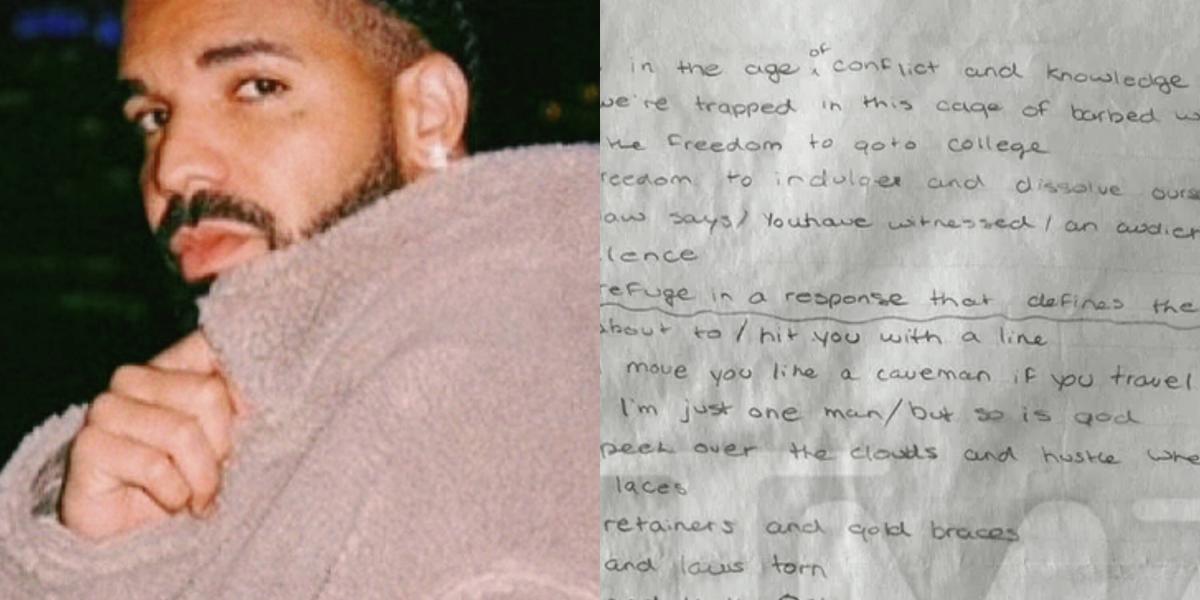 in the age of conflict and knowledge
we're trapped in this cage of barbed w
he freedom to goto college
reedom to indulge and dissolve ours
aw says/ Youhave witnessed / an audien
lence
refuge in a response that defines the
about to / hit you with a line
move you like a caveman if you travel
I'm just one man/but so is god
peek over the clouds and hustle whe
laces
retainers and gold braces
and laws torn